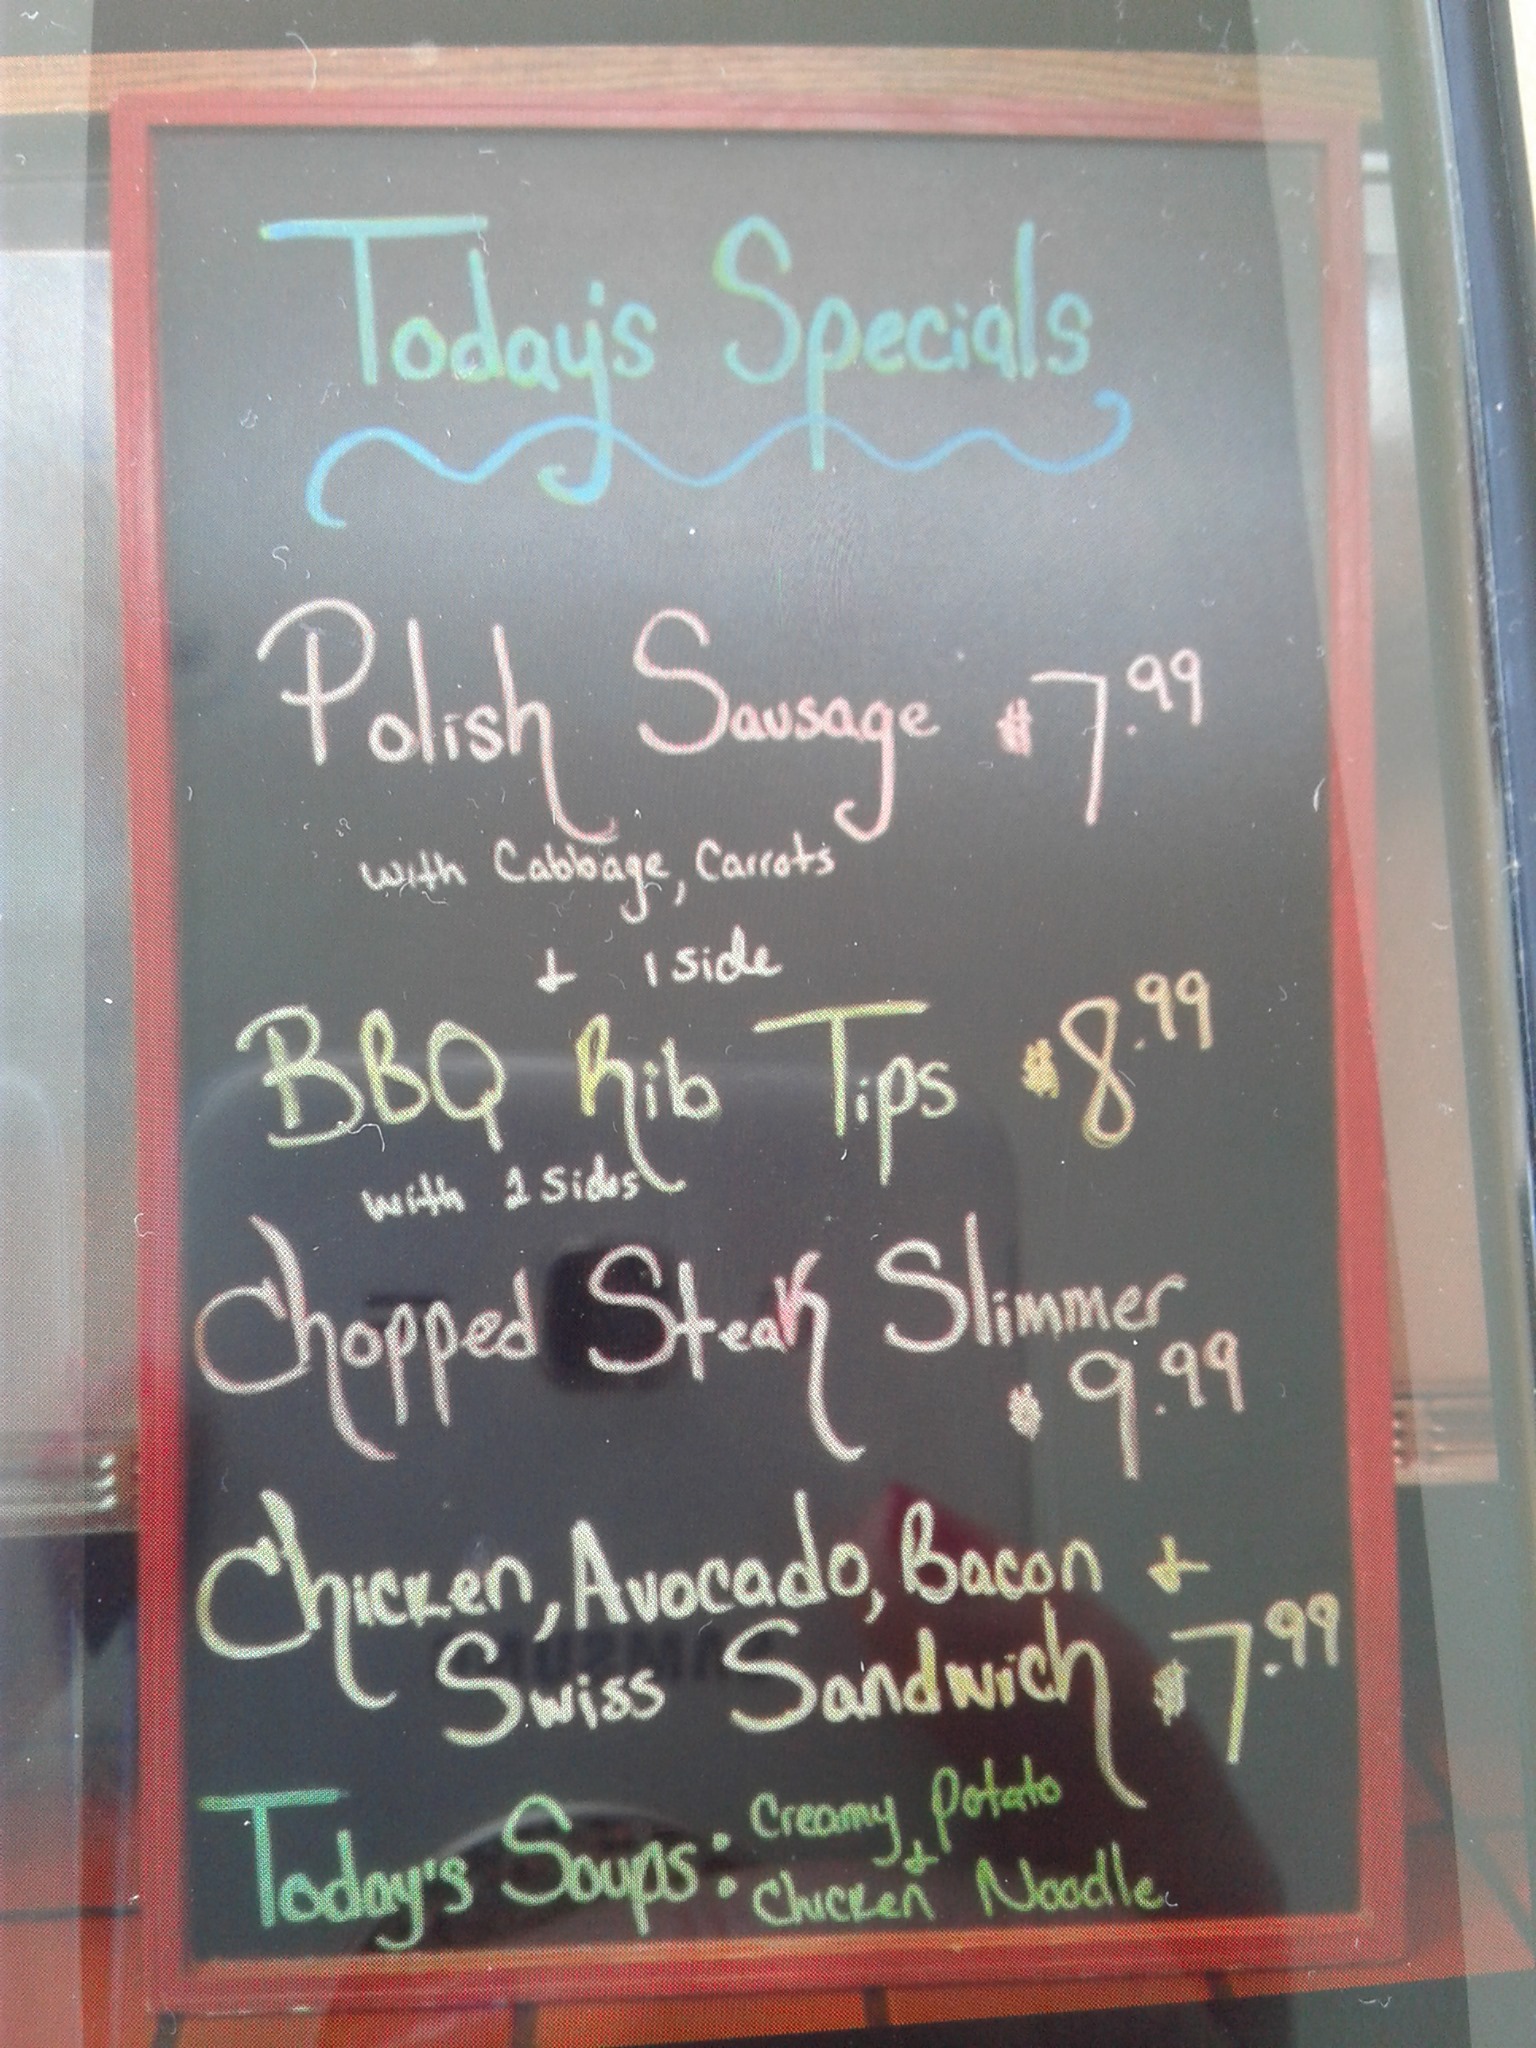 Today's Specials
Polish Sausage $7.99
with Cabbage, Carrots
+ 1 side
BBQ Rib Tips $8.99
with 2 sides
Chopped Steak Slimmer
$9.99
Chicken, Avocado, Bacon +
Swiss Sandwich $7.99
Today's Soups: Creamy Potato
+
Chicken Noodle